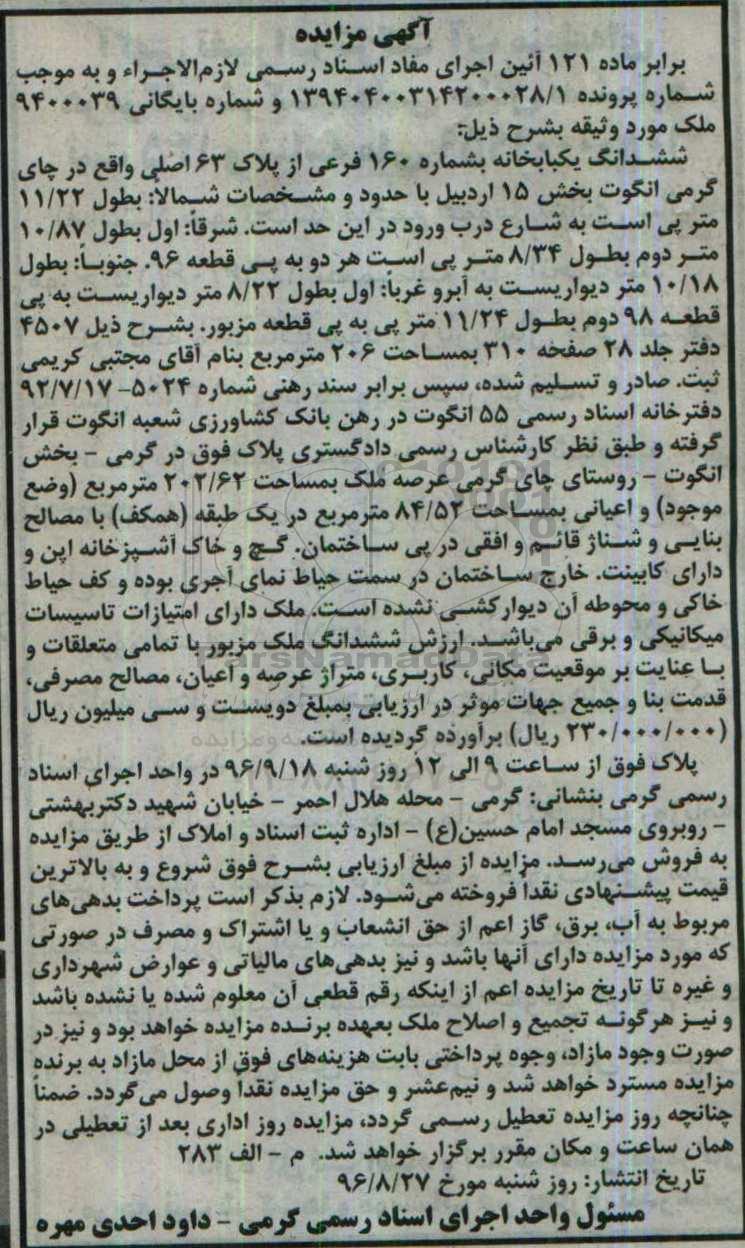 آگهی مزایده
برابر ماده ۱۲۱ آئین اجرای مفاد اسناد رسمی لازم‌الاجراء و به موجب
شماره پرونده ۱۳۹۴۰۴۰۰۳۱۴۲۰۰۰۲۸/۱ و شماره بایگانی ۹۴۰۰۰۳۹
ملک مورد وثیقه بشرح ذیل:
ششدانگ یکبابخانه بشماره ۱۶۰ فرعی از پلاک ۶۳ اصلی واقع در چای
گرمی انگوت بخش ۱۵ اردبیل با حدود و مشخصات شمالا: بطول ۱۱/۲۲
متر پی است به شارع درب ورود در این حد است. شرقاً: اول بطول ۱۰/۸۷
متر دوم بطول ۸/۳۴ متر پی است هر دو به پی قطعه ۹۶. جنوباً: بطول
۱۰/۱۸ متر دیواریست به آبرو غرباً: اول بطول ۸/۲۲ متر دیواریست به پی
قطعه ۹۸ دوم بطول ۱۱/۲۴ متر پی به پی قطعه مزبور. بشرح ذیل ۴۵۰۷
دفتر جلد ۲۸ صفحه ۳۱۰ بمساحت ۲۰۶ مترمربع بنام آقای مجتبی کریمی
ثبت. صادر و تسلیم شده، سپس برابر سند رهنی شماره ۵۰۲۴– ۹۲/۷/۱۷
دفترخانه اسناد رسمی ۵۵ انگوت در رهن بانک کشاورزی شعبه انگوت قرار
گرفته و طبق نظر کارشناس رسمی دادگستری پلاک فوق در گرمی – بخش
انگوت – روستای چای گرمی عرصه ملک بمساحت ۲۰۲/۶۲ مترمربع (وضع
موجود) و اعیانی بمساحت ۸۴/۵۲ مترمربع در یک طبقه (همکف) با مصالح
بنایی و شناژ قائم و افقی در پی ساختمان. گچ و خاک آشپزخانه اپن و
دارای کابینت. خارج ساختمان در سمت حیاط نمای آجری بوده و کف حیاط
خاکی و محوطه آن دیوارکشی نشده است. ملک دارای امتیازات تاسیسات
میکانیکی و برقی می‌باشد. ارزش ششدانگ ملک مزبور با تمامی متعلقات و
با عنایت بر موقعیت مکانی، کاربری، متراژ عرصه و اعیان، مصالح مصرفی،
قدمت بنا و جمیع جهات موثر در ارزیابی بمبلغ دویست و سی میلیون ریال
(۲۳۰/۰۰۰/۰۰۰ ریال) برآورده گردیده است.
پلاک فوق از ساعت ۹ الی ۱۲ روز شنبه ۹۶/۹/۱۸ در واحد اجرای اسناد
رسمی گرمی بنشانی: گرمی – محله هلال احمر – خیابان شهید دکتربهشتی
– روبروی مسجد امام حسین(ع) – اداره ثبت اسناد و املاک از طریق مزایده
به فروش می‌رسد. مزایده از مبلغ ارزیابی بشرح فوق شروع و به بالاترین
قیمت پیشنهادی نقداً فروخته می‌شود. لازم بذکر است پرداخت بدهی‌های
مربوط به آب، برق، گاز اعم از حق انشعاب و یا اشتراک و مصرف در صورتی
که مورد مزایده دارای آنها باشد و نیز بدهی‌های مالیاتی و عوارض شهرداری
و غیره تا تاریخ مزایده اعم از اینکه رقم قطعی آن معلوم شده یا نشده باشد
و نیز هرگونه تجمیع و اصلاح ملک بعهده برنده مزایده خواهد بود و نیز در
صورت وجود مازاد، وجوه پرداختی بابت هزینه‌های فوق از محل مازاد به برنده
مزایده مسترد خواهد شد و نیم‌عشر و حق مزایده نقداً وصول می‌گردد. ضمناً
چنانچه روز مزایده تعطیل رسمی گردد، مزایده روز اداری بعد از تعطیلی در
همان ساعت و مکان مقرر برگزار خواهد شد. م – الف ۲۸۳
تاریخ انتشار: روز شنبه مورخ ۹۶/۸/۲۷
مسئول واحد اجرای اسناد رسمی گرمی – داود احدی مهره